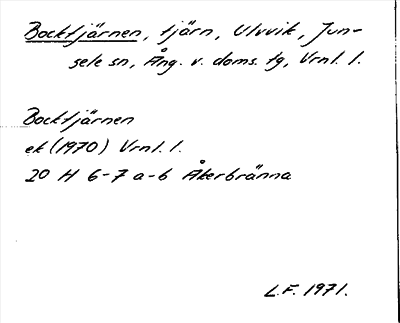 Bocktjärnen, tjärn, Ulvvik, Jun-
sele sn, Ång. v. doms. tg, Vrnl. l.
Bocktjärnen
ek (1970) Vrnl. l.
20 H 6-7 a-b Åkerbränna
L.F. 1971.